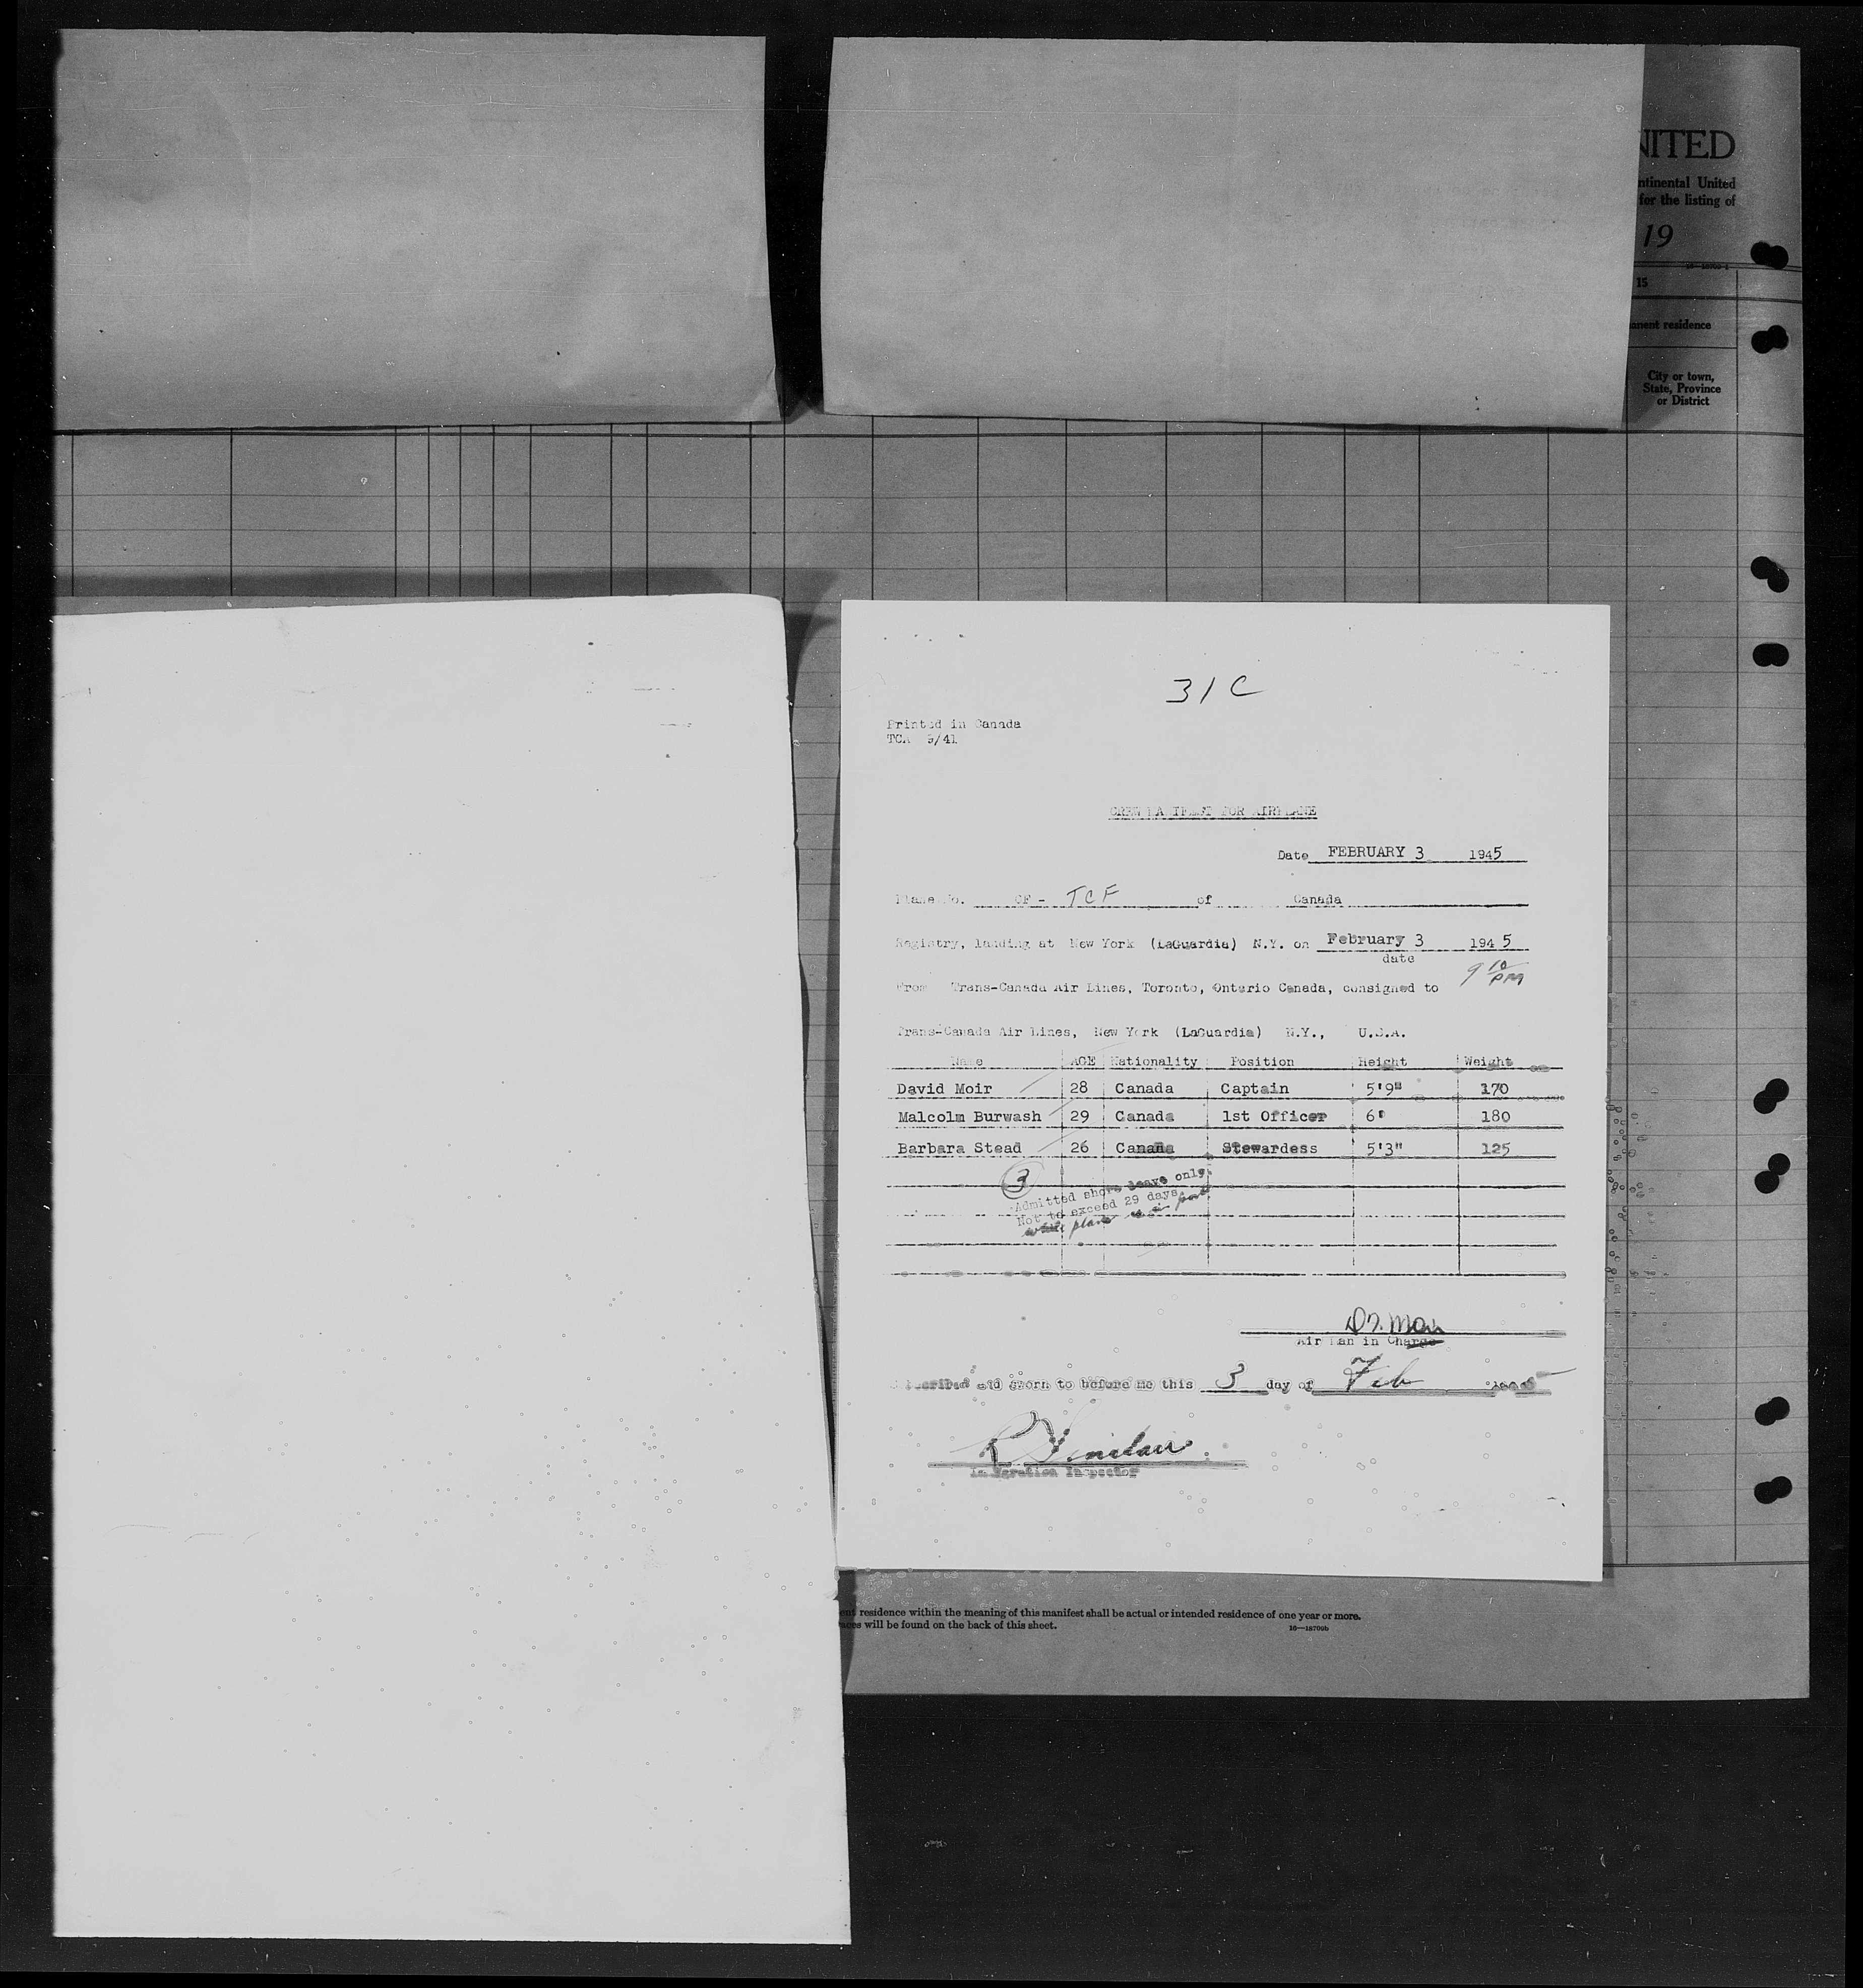 NITED
ntinental United
for the listing of
19
15
anent residence
City or town,
State, Province
or District
31C
Printed in Canada
TCA 9/41
CREW MANIFEST FOR AIRPLANE
Date FEBRUARY 3 1945
Plane No. CF - TCF of Canada
Registry, landing at New York (LaGuardia) N.Y. on February 3 1945
date
9 10 PM
From Trans-Canada Air Lines, Toronto, Ontario Canada, consigned to
Trans-Canada Air Lines, New York (LaGuardia) N.Y., U.S.A.
Name AGE Nationality Position Height Weight
David Moir 28 Canada Captain 5'9" 170
Malcolm Burwash 29 Canada 1st Officer 6' 180
Barbara Stead 26 Canada Stewardess 5'3" 125
3
Admitted shore leave only
Not to exceed 29 days
while plane is in port
Air Man in Charge
Subscribed and sworn to before me this 3 day of Feb
R Sinclair
Immigration Inspector
ent residence within the meaning of this manifest shall be actual or intended residence of one year or more.
aces will be found on the back of this sheet.
16—18709b